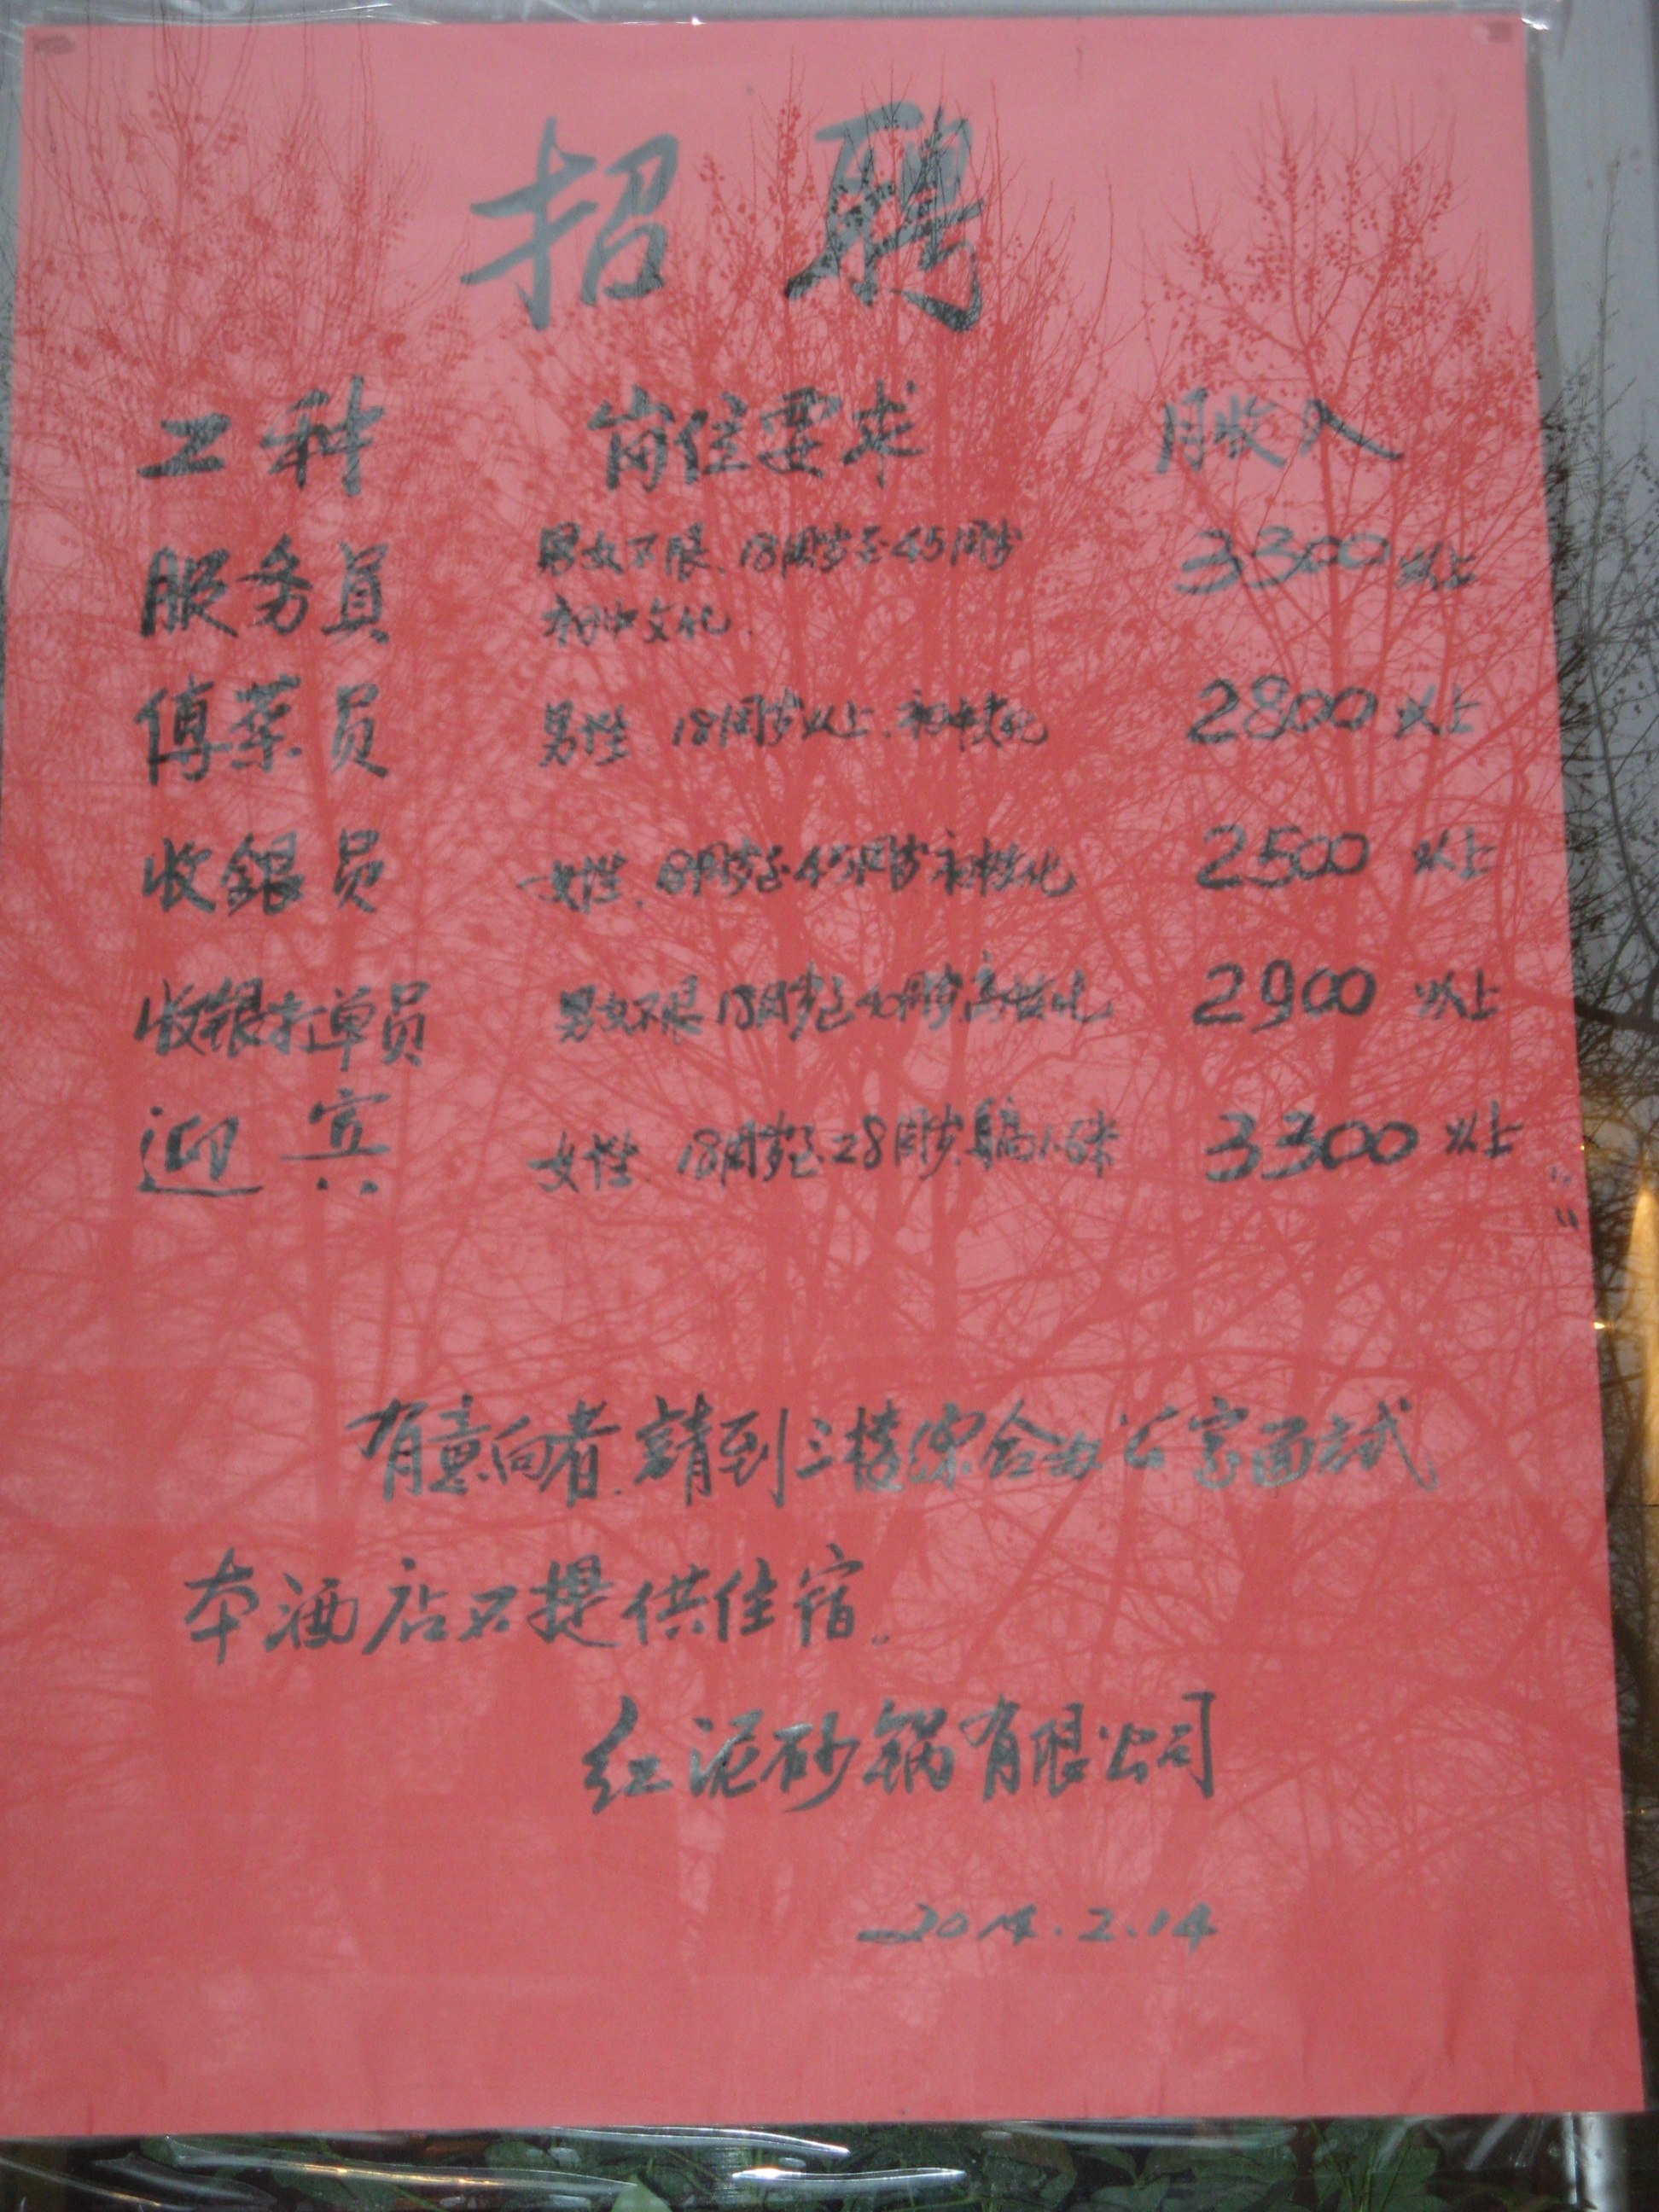 招聘
工种 岗位要求 月收入
服务员 男女不限、18周岁至45周岁 3300以上
初中文化.
傅菜员 男性、18周岁以上、初中文化 2800以上
收銀员 女性、18周岁至45周岁初中文化 2500以上
收银打单员 男女不限18周岁至40周岁,高中文化 2900以上
迎宾 女性、18周岁至28周岁、身高1.6米 3300以上
有意向者.請到三楼综合办公室面试
本酒店不提供住宿。
红泥砂锅有限公司
2014.2.14